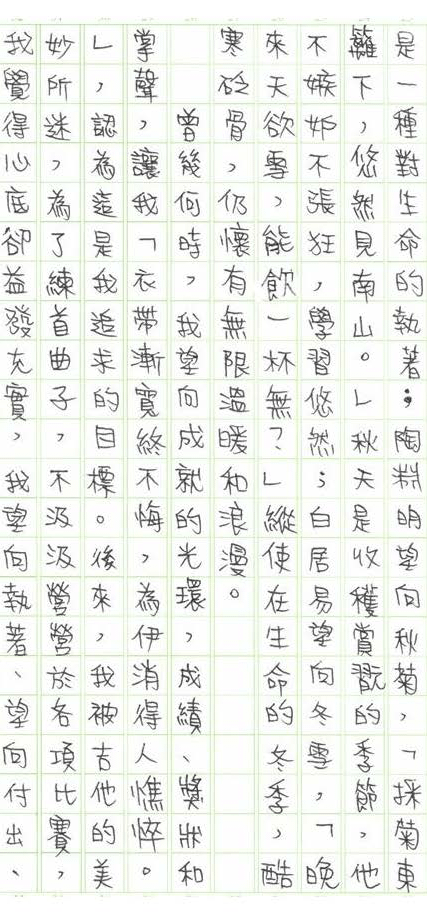 是一種對生命的執著；陶淵明望向秋菊，「採菊東
籬下，悠然見南山。」秋天是收穫賞翫的季節，他
不嫉妒，不張狂，學習悠然；白居易望向冬雪，「晚
來天欲雪，能飲一杯無？」縱使在生命的冬季，酷
寒砭骨，仍懷有無限溫暖和浪漫。
曾幾何時，我望向成就的光環，成績、獎狀和
掌聲，讓我「衣帶漸寬終不悔，為伊消得人憔悴。
」，認為這是我追求的目標。後來，我被吉他的美
妙所迷，為了練首曲子，不汲汲營營於各項比賽，
我覺得心底卻益發充實，我望向執著、望向付出、